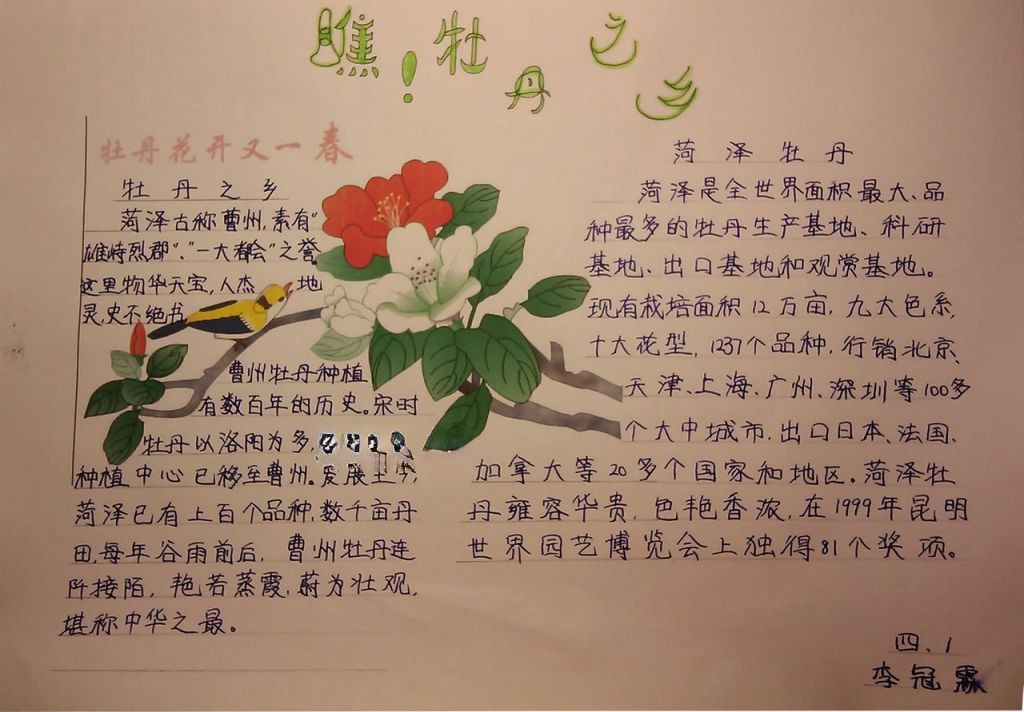 瞧！牡丹之乡
牡丹花开又一春
牡丹之乡
菏泽古称曹州,素有"
雄峙烈郡"、"一大都会"之誉
这里物华天宝,人杰地
灵,史不绝书
曹州牡丹种植
有数百年的历史。宋时
牡丹以洛阳为多,
种植中心已移至曹州。发展至今,
菏泽已有上百个品种,数千亩丹
田,每年谷雨前后,曹州牡丹连
阡接陌,艳若蒸霞,蔚为壮观,
堪称中华之最。
菏泽牡丹
菏泽是全世界面积最大、品
种最多的牡丹生产基地、科研
基地、出口基地和观赏基地。
现有栽培面积12万亩,九大色系,
十大花型,1237个品种,行销北京、
天津、上海、广州、深圳等100多
个大中城市,出口日本、法国、
加拿大等20多个国家和地区。菏泽牡
丹雍容华贵,色艳香浓,在1999年昆明
世界园艺博览会上独得81个奖项。
四、1
李冠霖